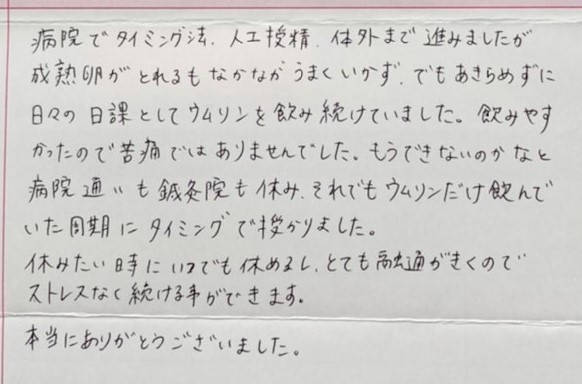 病院でタイミング法、人工授精、体外まで進みましたが
成熟卵がとれるもなかなかうまくいかず、でもあきらめずに
日々の日課としてウムリンを飲み続けていました。飲みやす
かったので苦痛ではありませんでした。もうできないのかなと
病院通いも鍼灸院も休み、それでもウムリンだけ飲んで
いた周期にタイミングで授かりました。
休みたい時にいつでも休めるし、とても融通がきくので
ストレスなく続ける事ができます。
本当にありがとうございました。